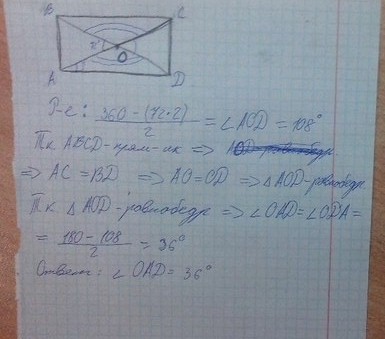 B C
72° O
A D
Р-е: 360 - (72·2) / 2 = ∠AOD = 108°
Тк ABCD - прям-ик =>
=> AC = BD => AO = OD => △AOD - равнобедр.
Тк △AOD - равнобедр => ∠OAD = ∠ODA =
= 180 - 108 / 2 = 36°
Ответ: ∠OAD = 36°